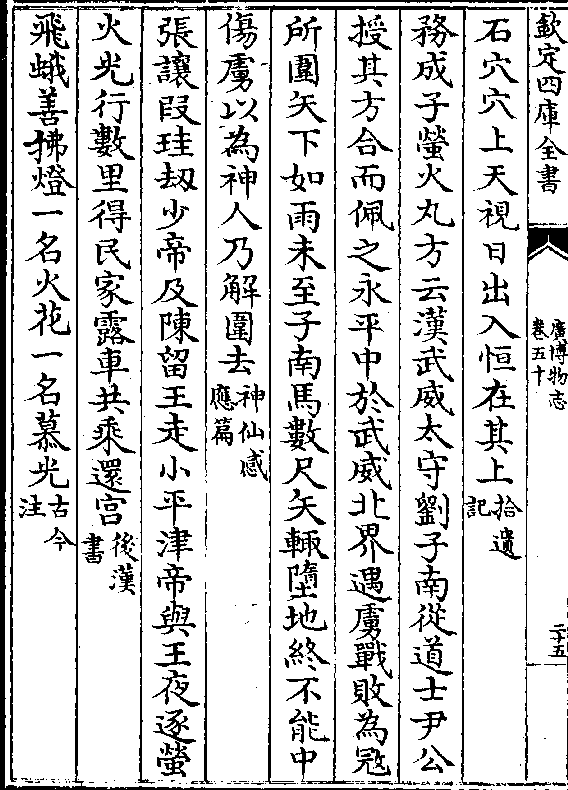 欽定四庫全書
廣博物志
卷五十
二十五
石穴穴上天視日出入恒在其上拾遺記
務成子螢火丸方云漢武威太守劉子南從道士尹公
授其方合而佩之永平中於武威北界遇虜戰敗為寇
所圍矢下如雨未至子南馬數尺矢輒墮地終不能中
傷虜以為神人乃解圍去神仙感應篇
張讓段珪刼少帝及陳留王走小平津帝與王夜逐螢
火光行數里得民家露車共乘還宫後漢書
飛蛾善拂燈一名火花一名慕光古今注